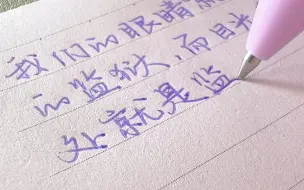 我们的眼睛
的监狱,而目光
处就是监